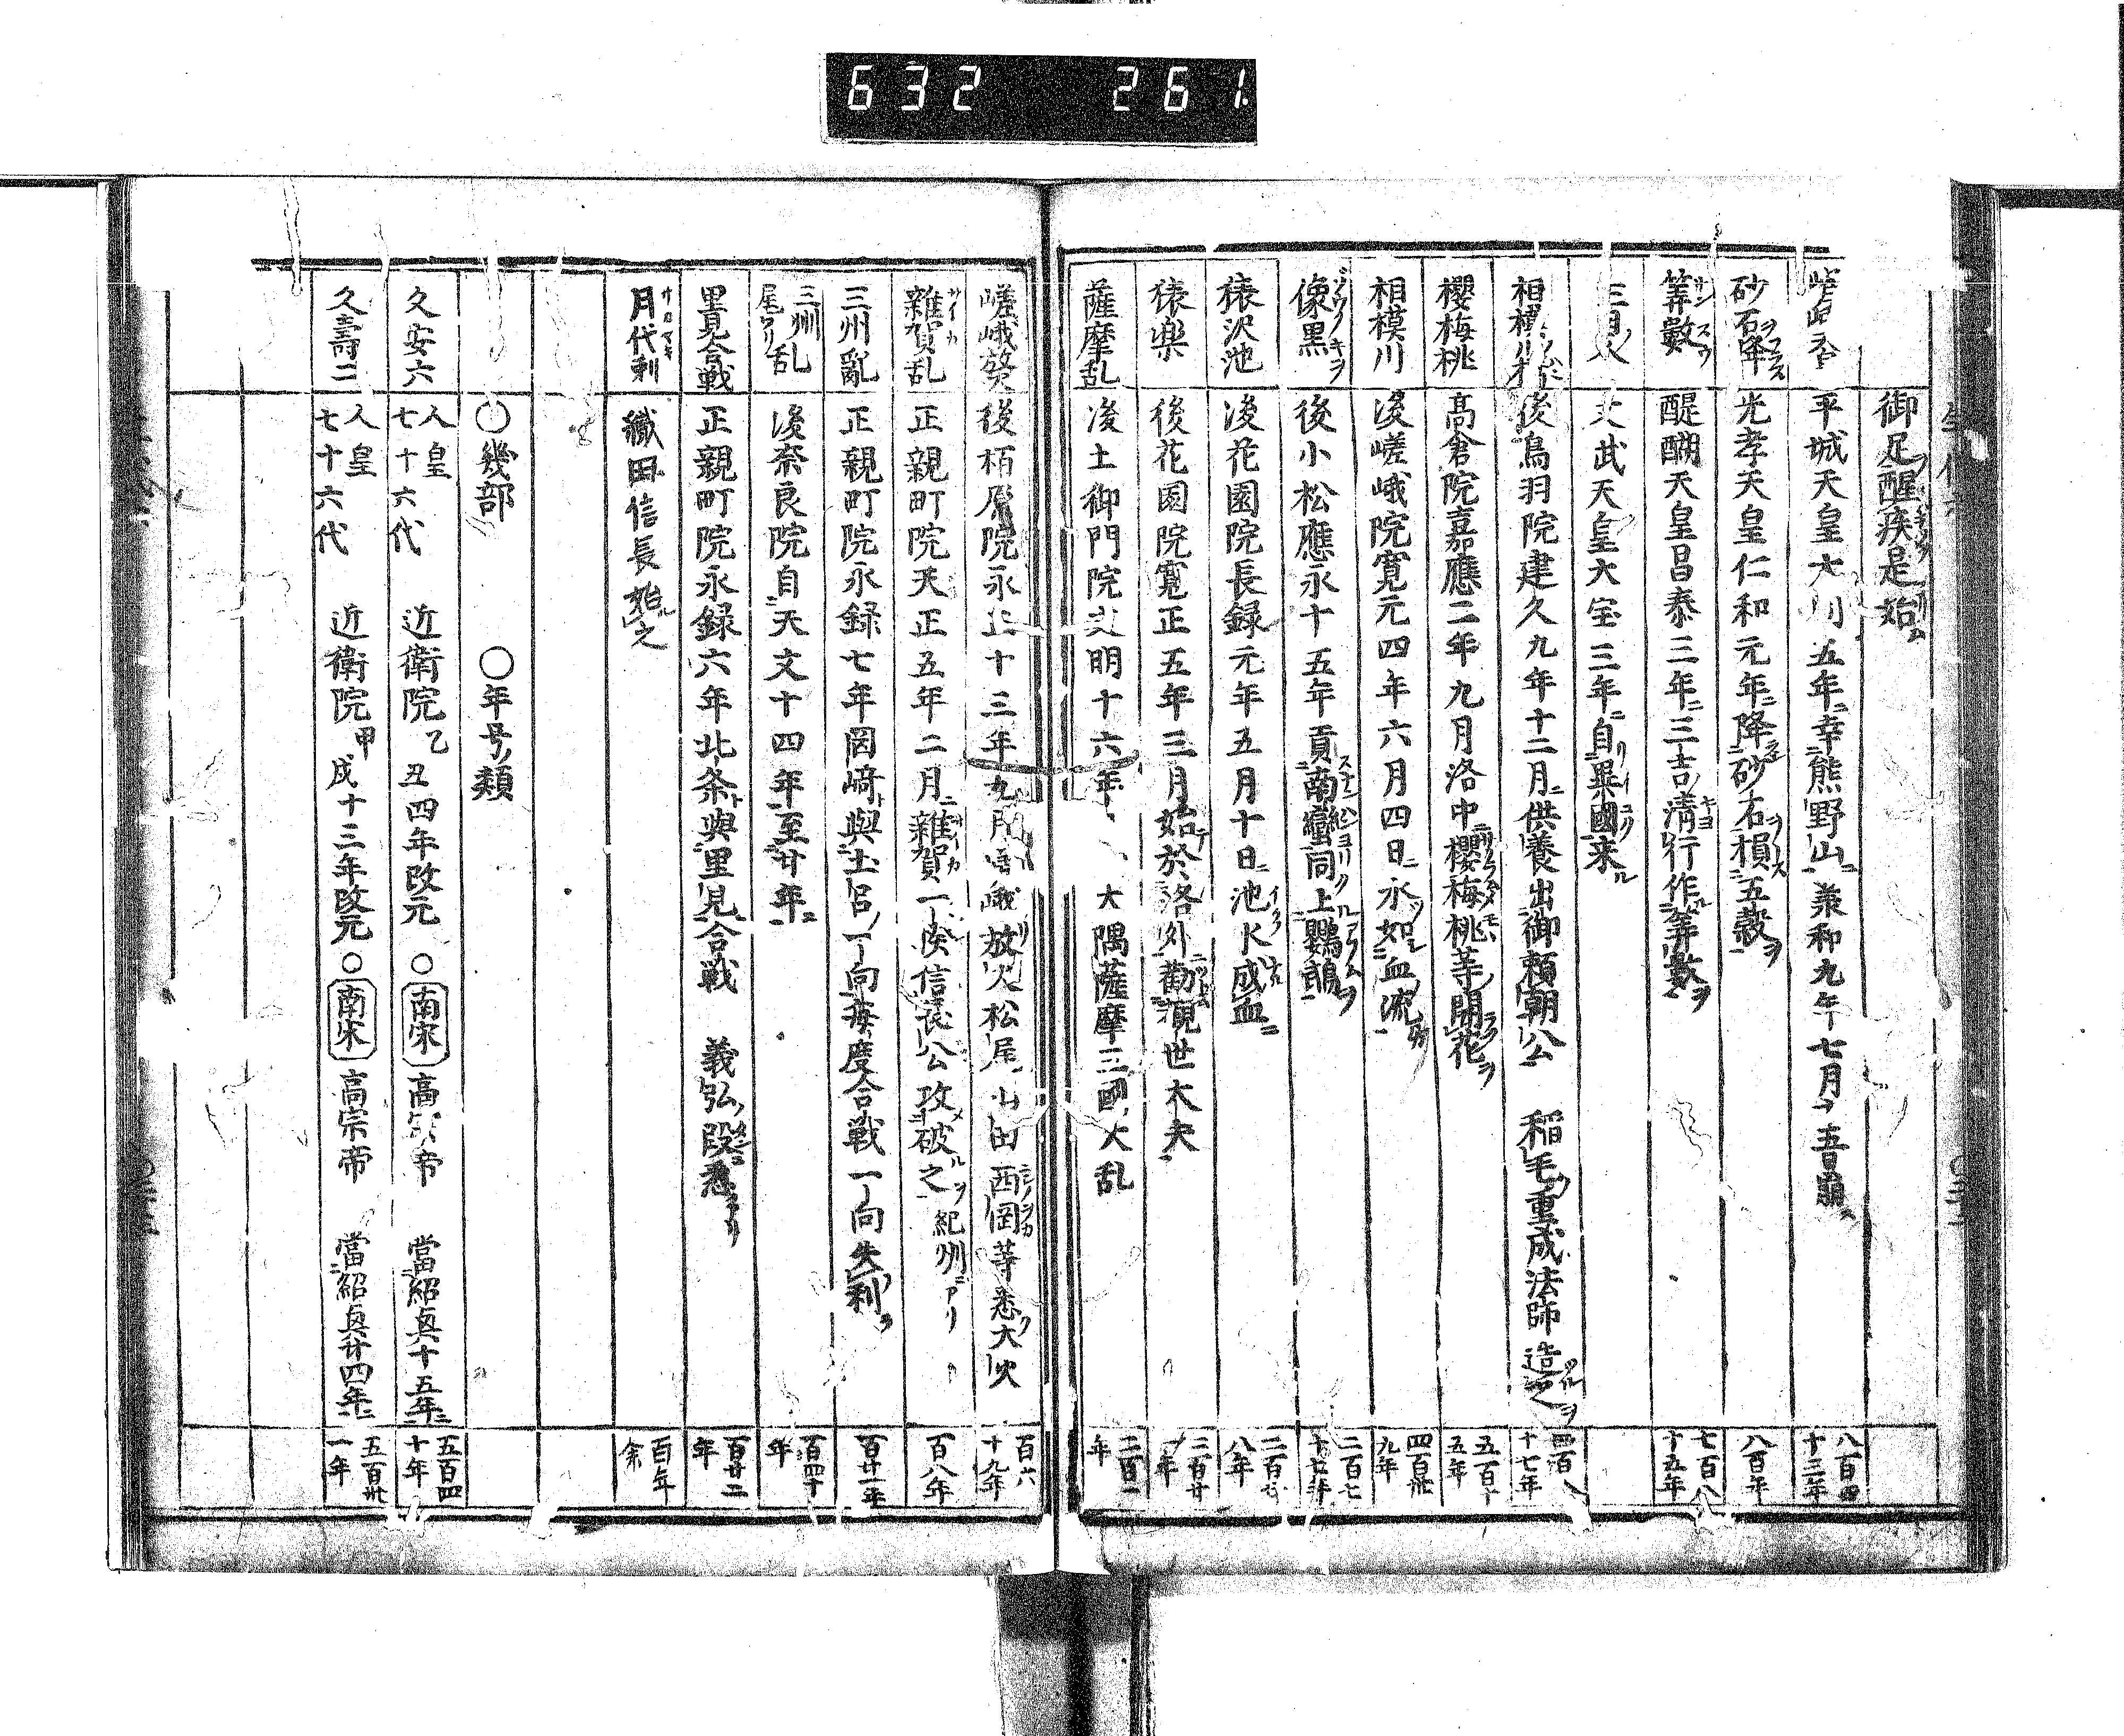 632 261
御足醒疾是始
平城天皇大同五年ニ幸熊野山 兼和九年七月 崩
八百四十三年
砂石降 光孝天皇仁和元年ニ降砂石損五穀ヲ
八百年
筭數 醍醐天皇昌泰三年ニ三吉清行作筭數ヲ
七百八十五年
文武天皇大宝三年ニ自異國来ル
後鳥羽院建久九年十二月ニ供養出御頼朝公 稲毛重成法師造之ヲ
四百八十七年
櫻梅桃 高倉院嘉應二年九月洛中櫻梅桃等開花ヲ
五百十五年
相模川 後嵯峨院寛元四年六月四日ニ水如血流
四百卅九年
像黒 後小松應永十五年貢南蠻同上鸚鵡ヲ
二百七十七年
猿沢池 後花園院長録元年五月十日ニ池水成血ニ
二百廿八年
猿樂 後花園院寛正五年三月始於洛外勸観世大夫
二百廿年
薩摩乱 後土御門院文明十六年 大隅薩摩三國大乱
二百二年
嵯峨焚 後栢原院永正十三年九月 峨放火松尾山田西岡等悉大火
百六十九年
雜賀乱 正親町院天正五年二月ニ雜賀一揆信長公攻破之 紀州ニアリ
百八年
三州亂 正親町院永録七年岡﨑與土呂一向毎度合戦一向失利ヲ
百廿一年
三州尾ワリ乱 後奈良院自天文十四年至廿年ニ
百四十年
里見合戦 正親町院永録六年北条與里見合戦 義弘段
百廿二年
月代剃 織田信長始之
百年余
○幾部 ○年号類
久安六 人皇七十六代 近衛院乙丑四年改元○南宋高宗帝 當紹興十五年ニ
五百四十年
久壽二 人皇七十六代 近衛院甲戌十三年改元○南宋高宗帝 當紹興廿四年ニ
五百卅一年